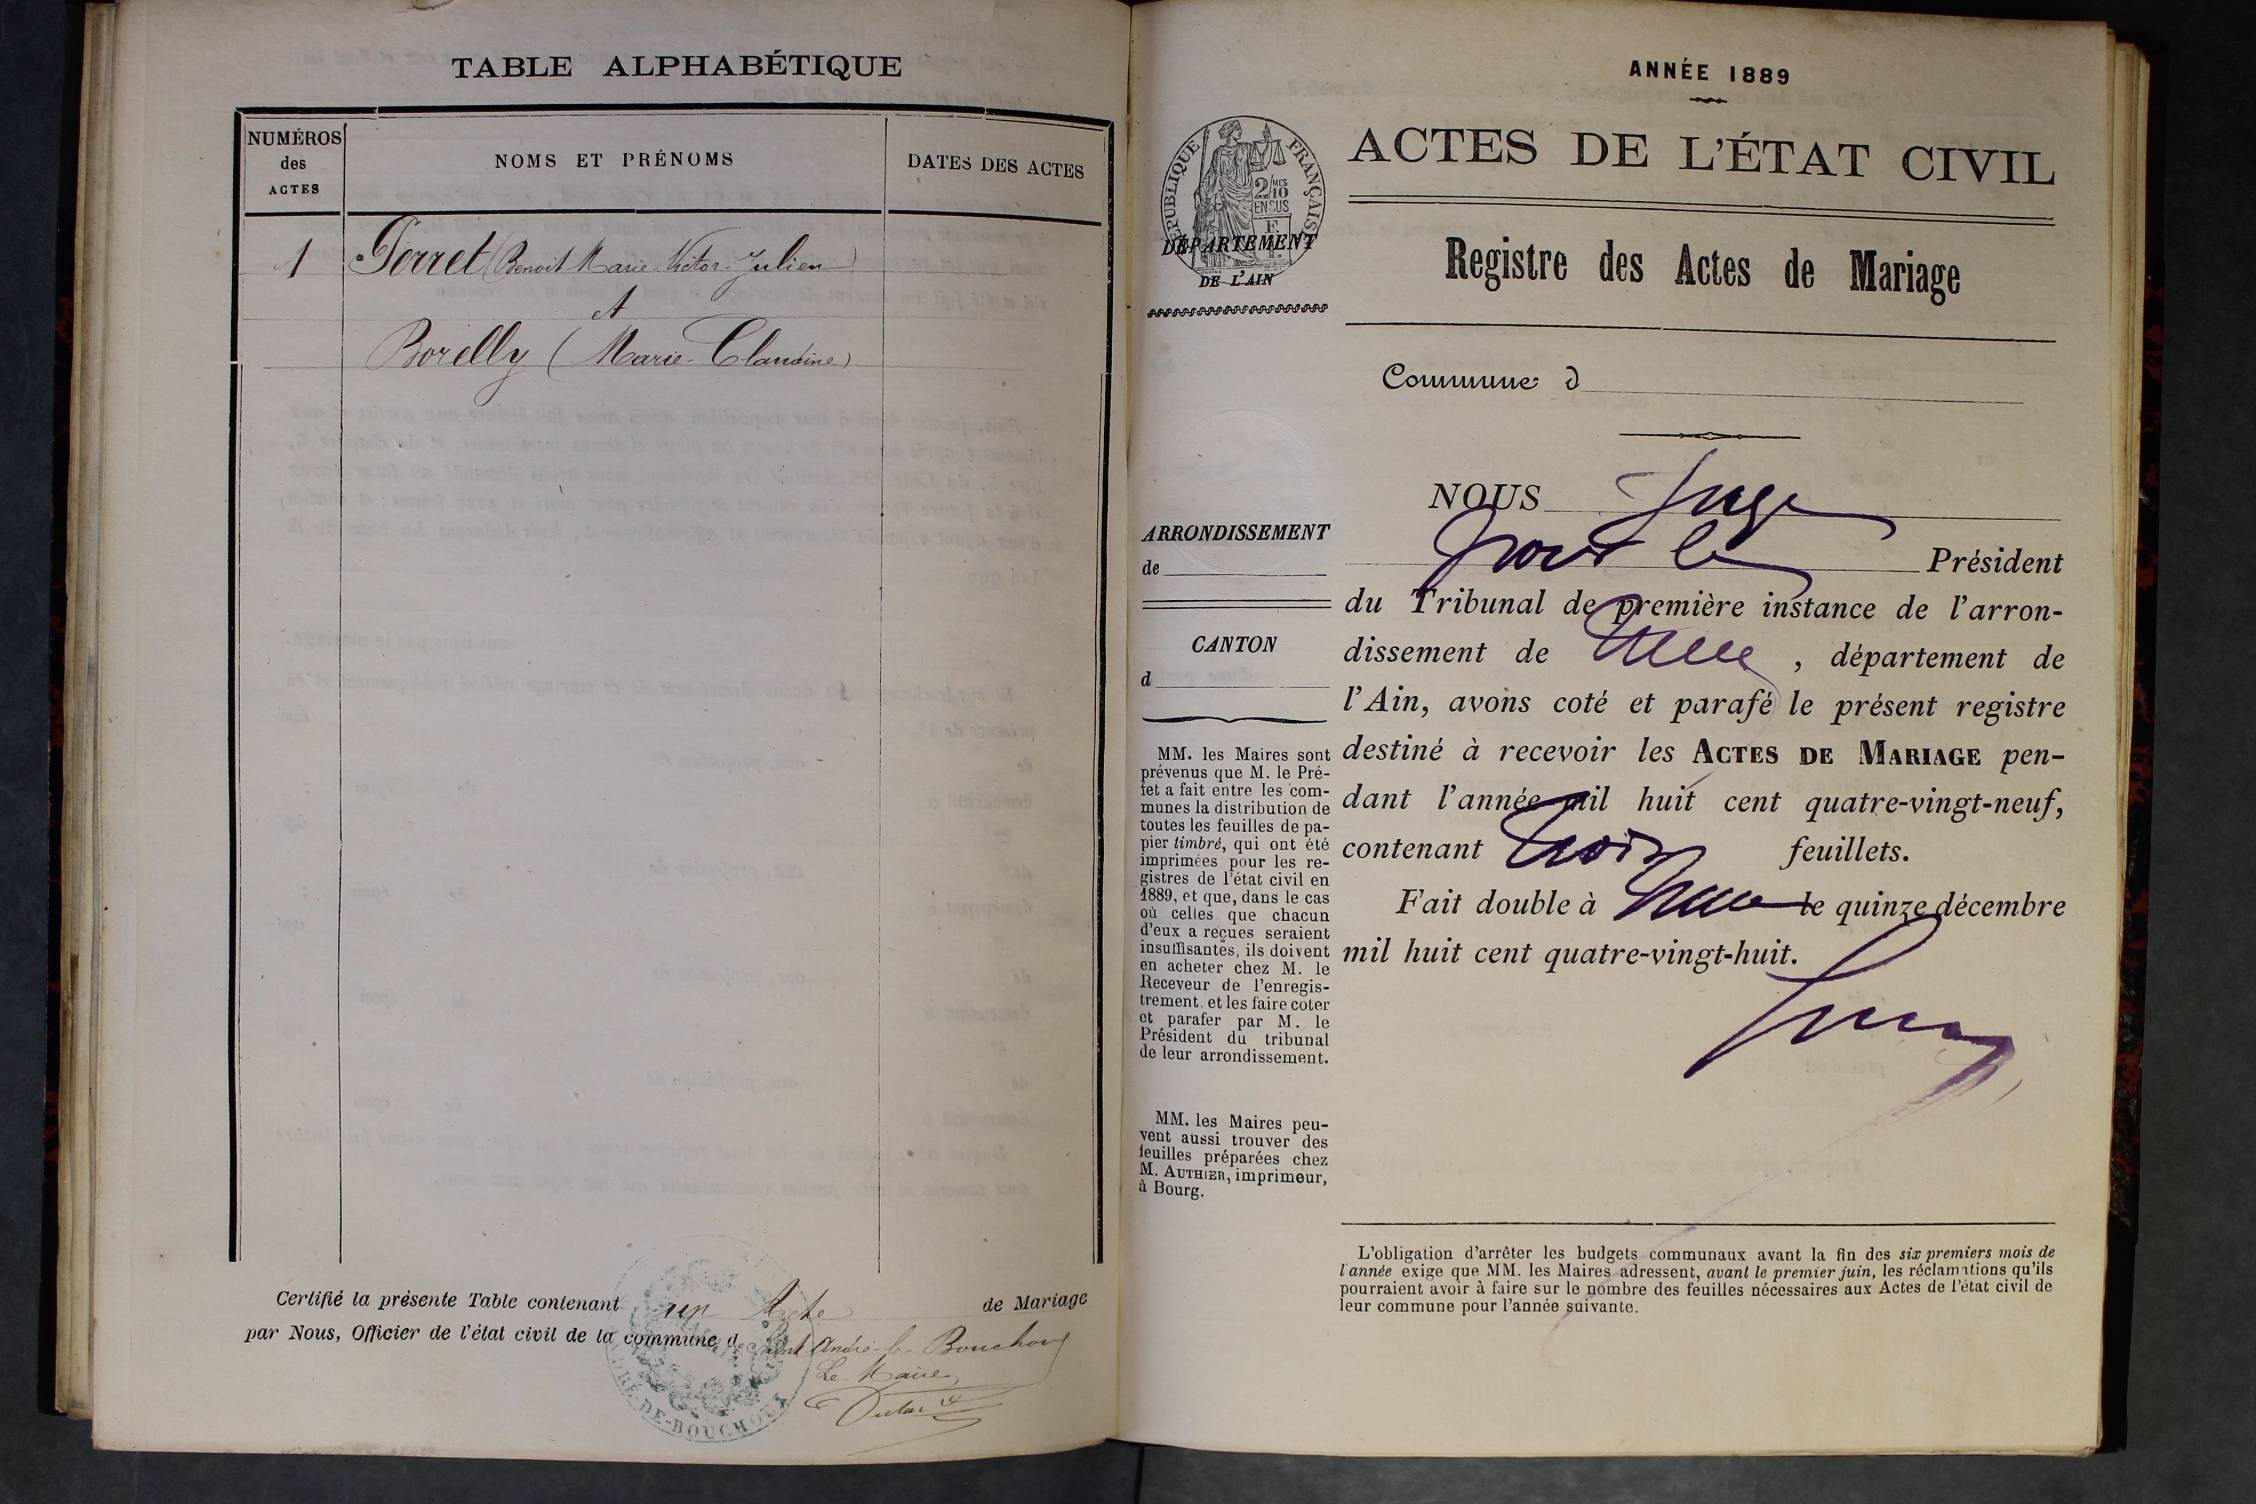 TABLE ALPHABÉTIQUE
NUMÉROS
des
ACTES
NOMS ET PRÉNOMS
DATES DES ACTES
1 Perret (Benoit Marie Victor Julien)
et
Borelly (Marie-Claudine)
Certifié la présente Table contenant un Acte de Mariage
par Nous, Officier de l'état civil de la commune de Saint André-le-Bouchoux
Le Maire
DE-BOUCHOUX
ANNÉE 1889
ACTES DE L'ÉTAT CIVIL
RÉPUBLIQUE FRANÇAISE
2/10 MES
EN SUS
DÉPARTEMENT
DE L'AIN
Registre des Actes de Mariage
Commune d
ARRONDISSEMENT
de
CANTON
d
MM. les Maires sont
prévenus que M. le Pré-
fet a fait entre les com-
munes la distribution de
toutes les feuilles de pa-
pier timbré, qui ont été
imprimées pour les re-
gistres de l'état civil en
1889, et que, dans le cas
où celles que chacun
d'eux a reçues seraient
insuffisantes, ils doivent
en acheter chez M. le
Receveur de l'enregis-
trement et les faire coter
et parafer par M. le
Président du tribunal
de leur arrondissement.
MM. les Maires peu-
vent aussi trouver des
feuilles préparées chez
M. AUTHIER, imprimeur,
à Bourg.
NOUS Juge
pour le Président
du Tribunal de première instance de l'arron-
dissement de , département de
l'Ain, avons coté et parafé le présent registre
destiné à recevoir les ACTES DE MARIAGE pen-
dant l'année mil huit cent quatre-vingt-neuf,
contenant trois feuillets.
Fait double à le quinze décembre
mil huit cent quatre-vingt-huit.
L'obligation d'arrêter les budgets communaux avant la fin des six premiers mois de
l'année exige que MM. les Maires adressent, avant le premier juin, les réclamations qu'ils
pourraient avoir à faire sur le nombre des feuilles nécessaires aux Actes de l'état civil de
leur commune pour l'année suivante.